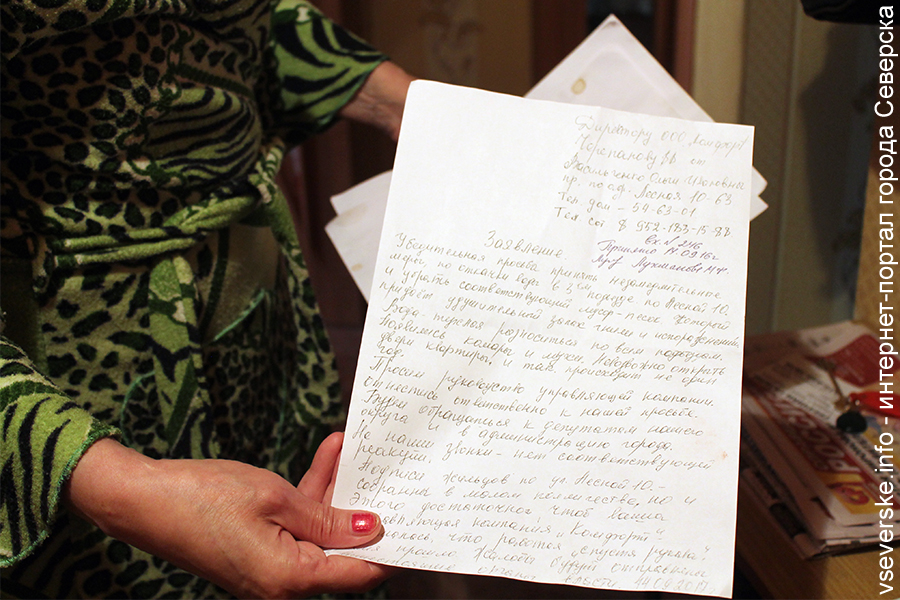 Директору ООО Комфорт
Черепанову ВВ от
Васильченко Ольги Ивановны
пр. по ад. Лесная 10-63
Тел. дом - 54-63-01
Тел сот 8 952-183-15-88
вх. № 2116
Заявление.
Убедительная просьба принять незамедлительные
меры, по откачки воды в 3ем подъезде по Лесной 10.
и убрать соответствующий мусор-песок который
придает удушительный запах гнили и испорожнений
Вода-перегноя разноситься по всем подъездам.
Появились комары и мухи. Невозможно открыть
двери квартиры, и так происходит не один
год.
Просим руководство управляющей компании.
отнестись ответственно к нашей просьбе.
Будем обращаться к депутатам нашего
округа и в администрацию города.
На наши звонки - нет соответствующей
реакции.
Подписи жильцов по ул. Лесной 10. -
собранны в малом колличестве, но и
этого достаточно чтоб ваша
компания „Комфорт“
что работая „спустя рукава“
жалобы будут отправлены
органы власти
vseverske.info - интернет-портал города Северска